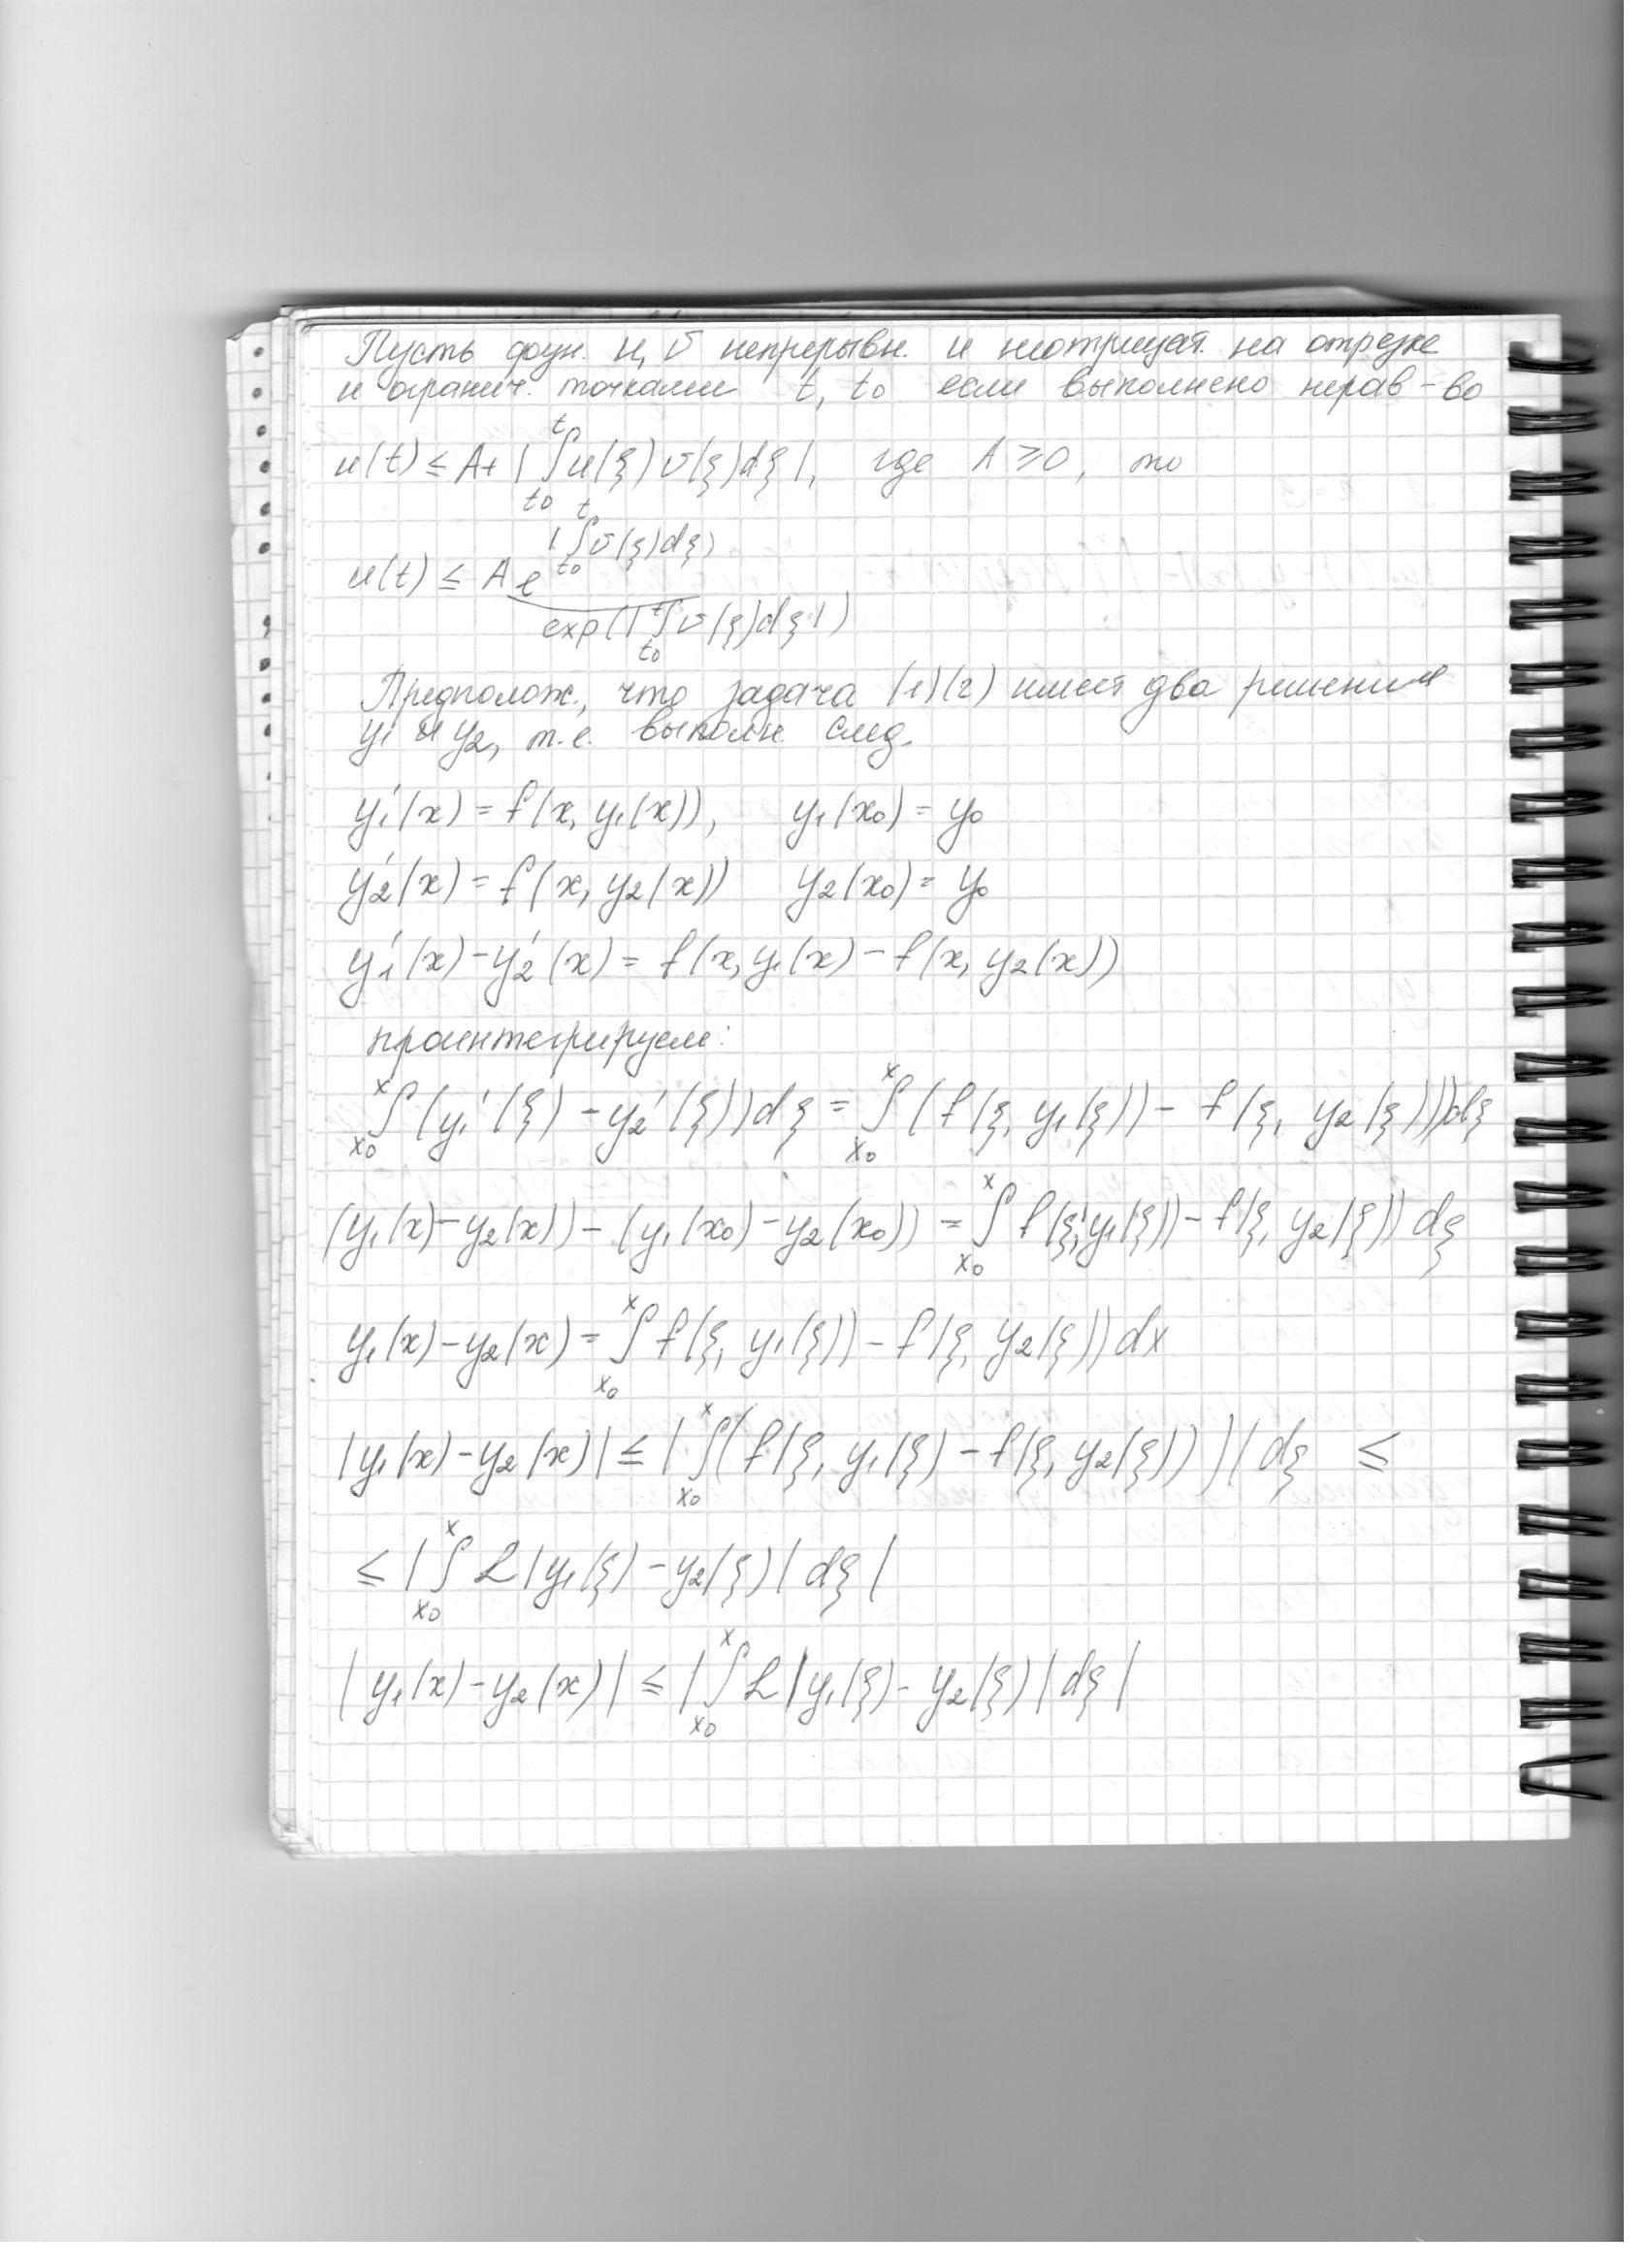 Пусть фун. u, v непрерывн. и неотрицат. на отрезке
и огранич. точками t, t₀ если выполнено нерав-во
u(t) ≤ A + |∫_{t₀}^{t} u(ξ) v(ξ) dξ|, где A ≥ 0, то
u(t) ≤ A e^{|∫_{t₀}^{t} v(ξ)dξ)}
exp(|∫_{t₀}^{t} v(ξ)dξ|)
Предполож., что задача (1)(2) имеет два решения
y₁ и y₂, т.е. выполн. след.
y₁'(x) = f(x, y₁(x)), y₁(x₀) = y₀
y₂'(x) = f(x, y₂(x)) y₂(x₀) = y₀
y₁'(x) - y₂'(x) = f(x, y₁(x) - f(x, y₂(x))
проинтегрируем:
∫_{x₀}^{x} (y₁'(ξ) - y₂'(ξ))dξ = ∫_{x₀}^{x} (f(ξ, y₁(ξ)) - f(ξ, y₂(ξ)))dξ
(y₁(x) - y₂(x)) - (y₁(x₀) - y₂(x₀)) = ∫_{x₀}^{x} f(ξ, y₁(ξ)) - f(ξ, y₂(ξ)) dξ
y₁(x) - y₂(x) = ∫_{x₀}^{x} f(ξ, y₁(ξ)) - f(ξ, y₂(ξ)) dx
|y₁(x) - y₂(x)| ≤ |∫_{x₀}^{x} (f(ξ, y₁(ξ) - f(ξ, y₂(ξ)))| dξ ≤
≤ |∫_{x₀}^{x} L|y₁(ξ) - y₂(ξ)| dξ|
|y₁(x) - y₂(x)| ≤ |∫_{x₀}^{x} L|y₁(ξ) - y₂(ξ)| dξ|